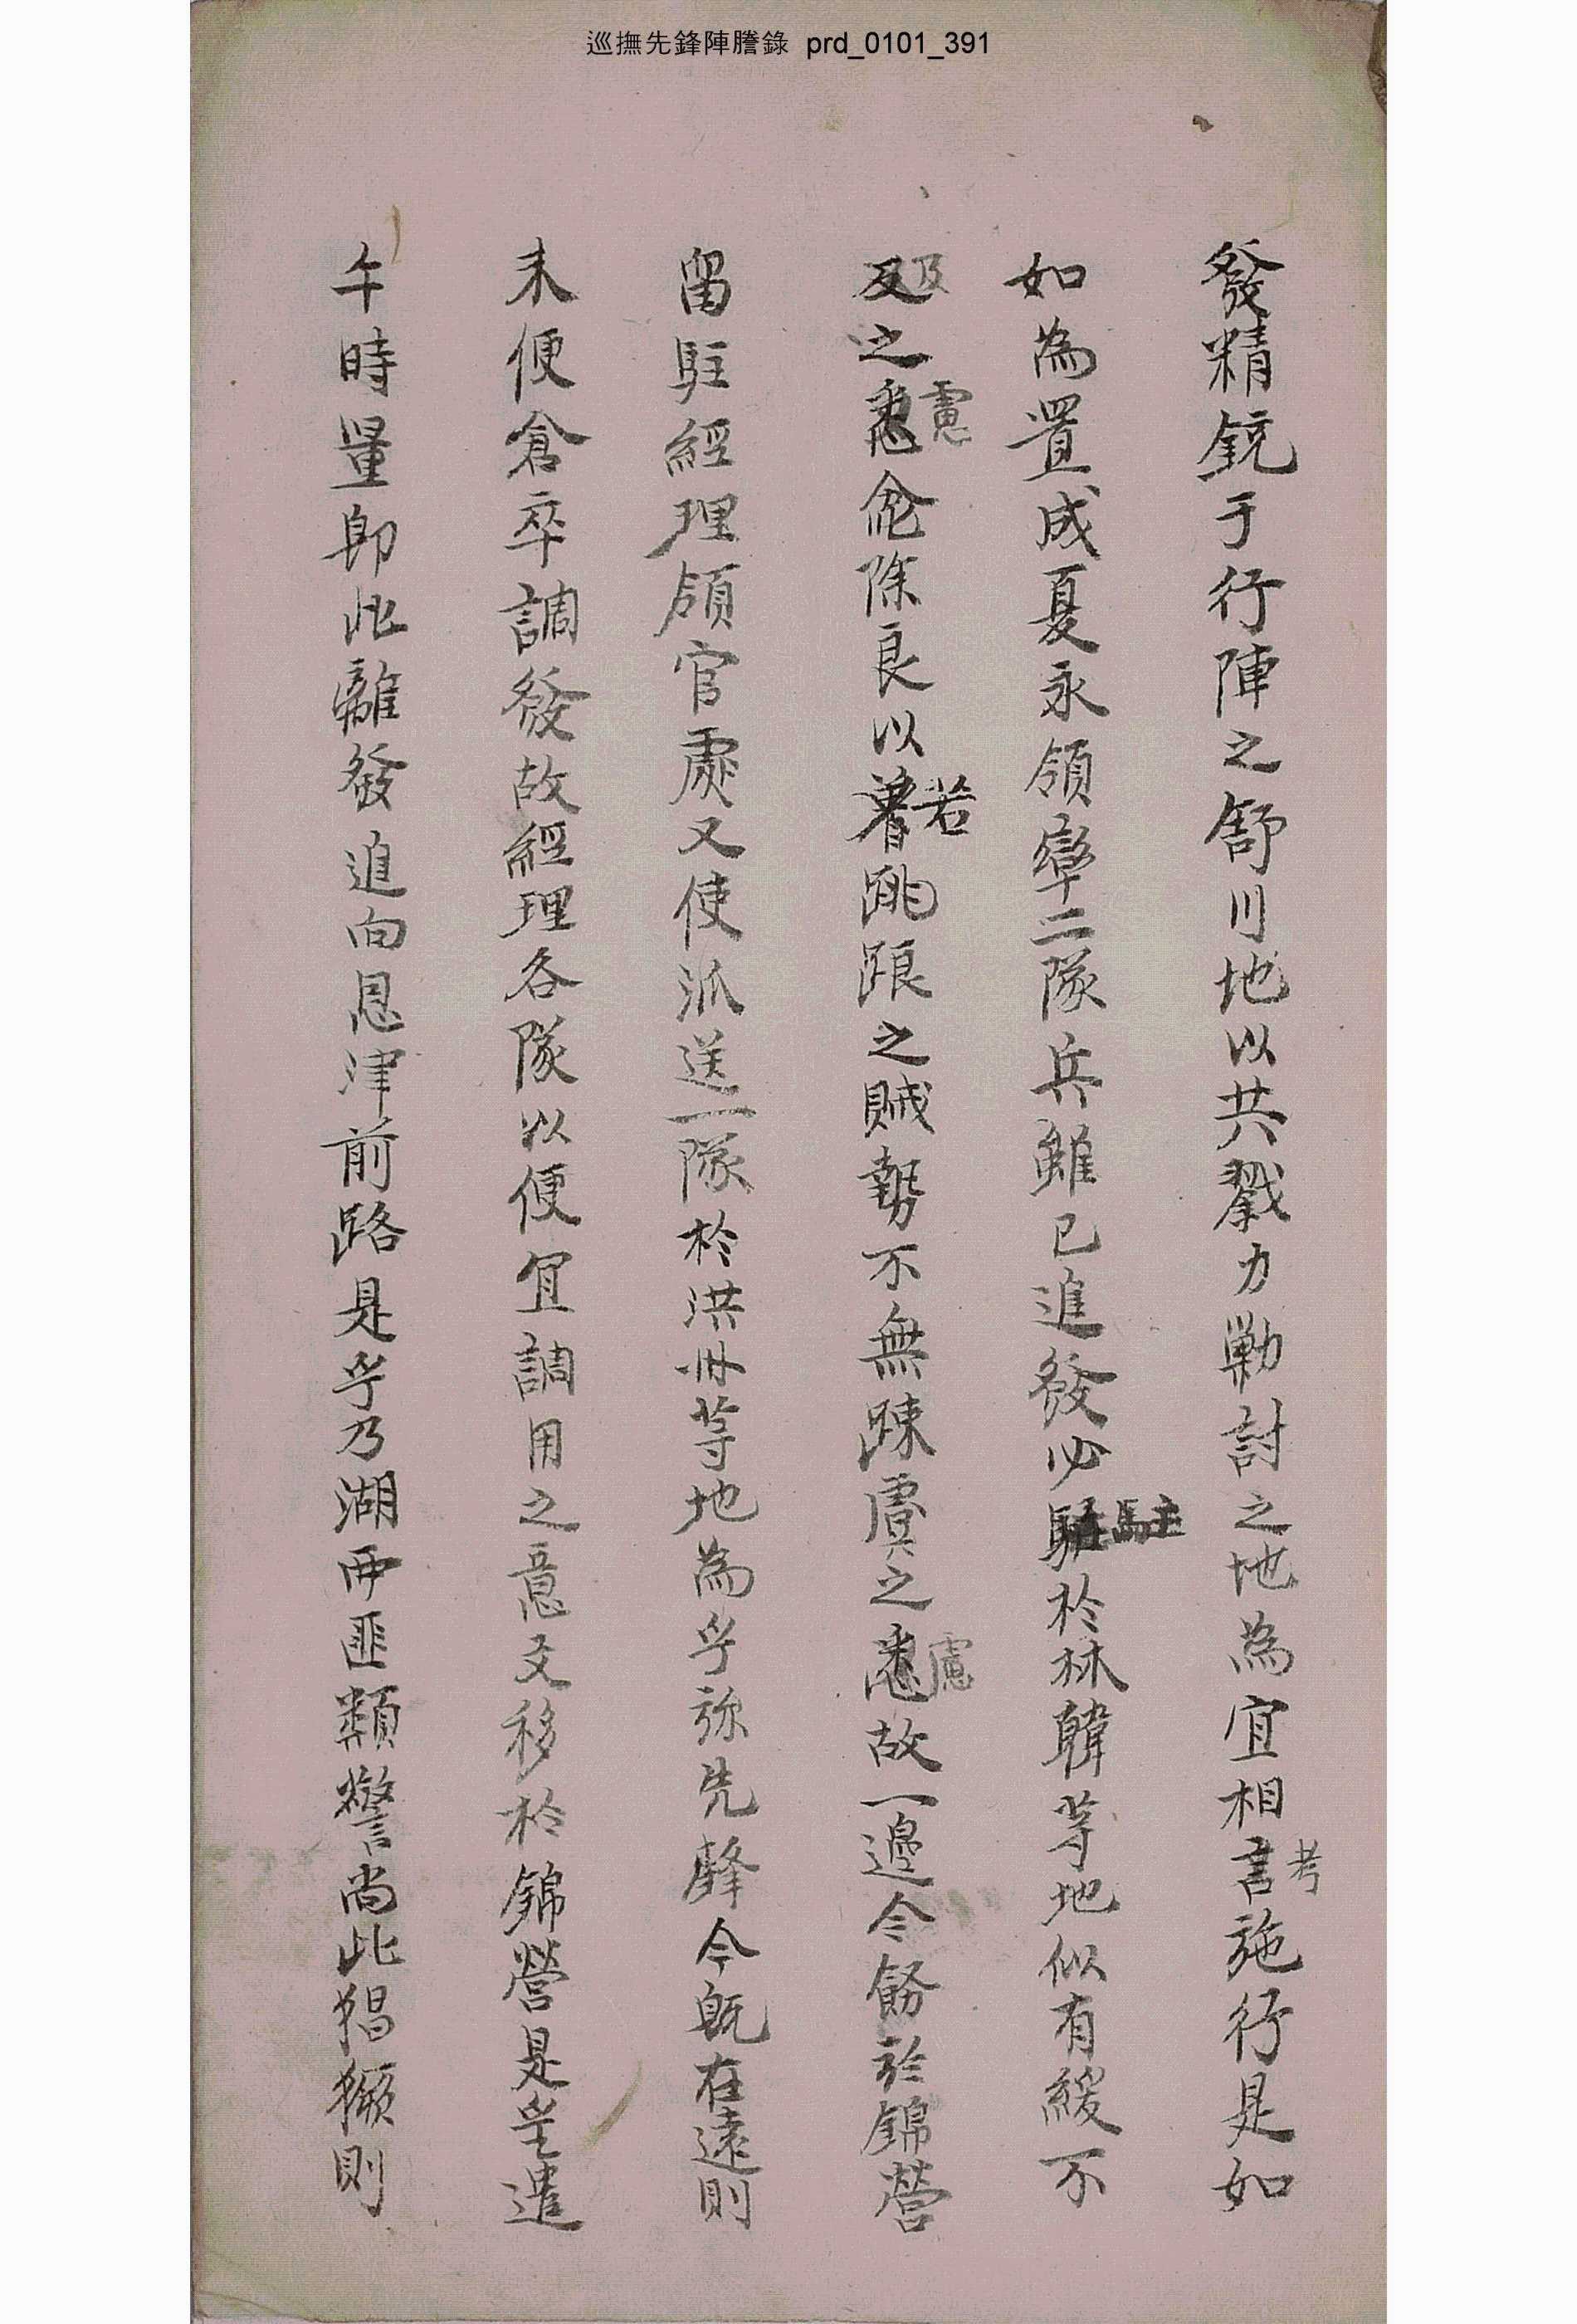 巡撫先鋒陣謄錄 prd_0101_391
發精銳于行陣之舒川地以共戮力勦討之地為宜相考施行是如
如為置成夏永領率二隊兵雖已進發必駐於林韓等地似有緩不
及之慮除良以若跳踉之賊勢不無踈虞之慮故一邊令飭於錦營
留駐經理領官處又使派送一隊於洪州等地為乎旀先鋒今旣在遠則
未便倉卒調發故經理各隊以便宜調用之意文移於錦營是乎遣
午時量卽此離發追向恩津前路是乎乃湖西匪類警尚此猖獗則